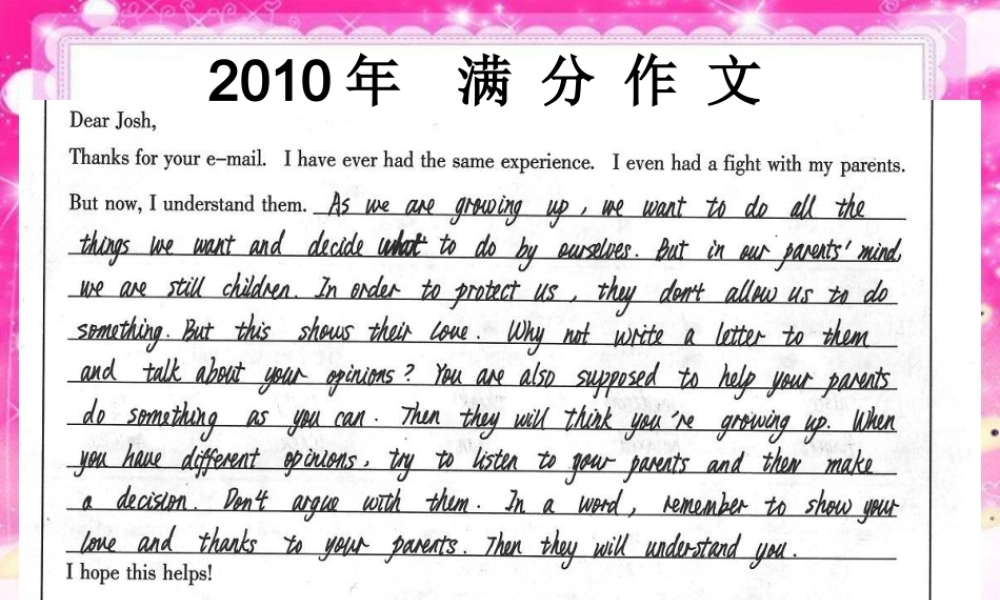 2010年 满分作文
Dear Josh,
Thanks for your e-mail. I have ever had the same experience. I even had a fight with my parents.
But now, I understand them. As we are growing up, we want to do all the
things we want and decide what to do by ourselves. But in our parents' mind,
we are still children. In order to protect us, they don't allow us to do
something. But this shows their love. Why not write a letter to them
and talk about your opinions? You are also supposed to help your parents
do something as you can. Then they will think you're growing up. When
you have different opinions, try to listen to your parents and then make
a decision. Don't argue with them. In a word, remember to show your
love and thanks to your parents. Then they will understand you.
I hope this helps!